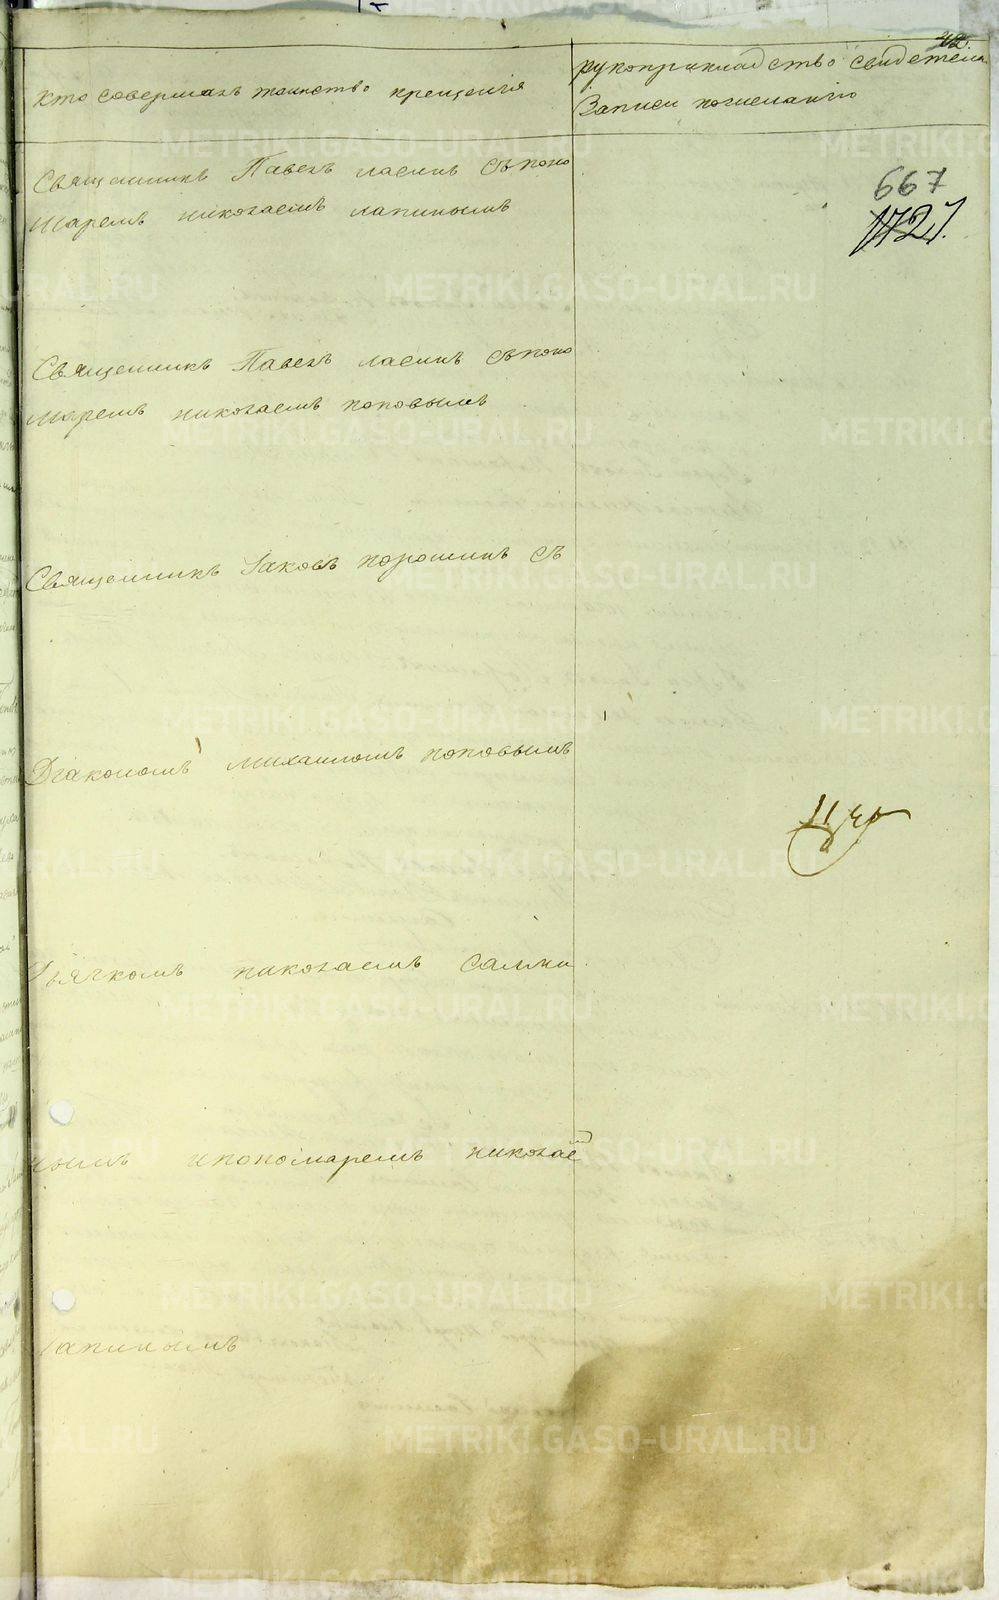 кто совершалъ таинство крещенія
рукоприкладство свидетелей
Записи по желанію
667
Священникъ Павелъ
Маремъ николаемъ лапинымъ
Священникъ Павелъ
Маремъ николаемъ поповымъ
Священникъ Іаковъ порошинъ съ
Діакономъ михаиломъ поповымъ
Дьячкомъ николаемъ
нымъ ипономаремъ николаем
лапинымъ
METRIKI.GASO-URAL.RU